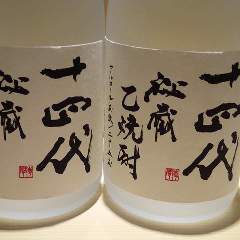 十四代
秘蔵
乙焼酎
十四代
秘蔵